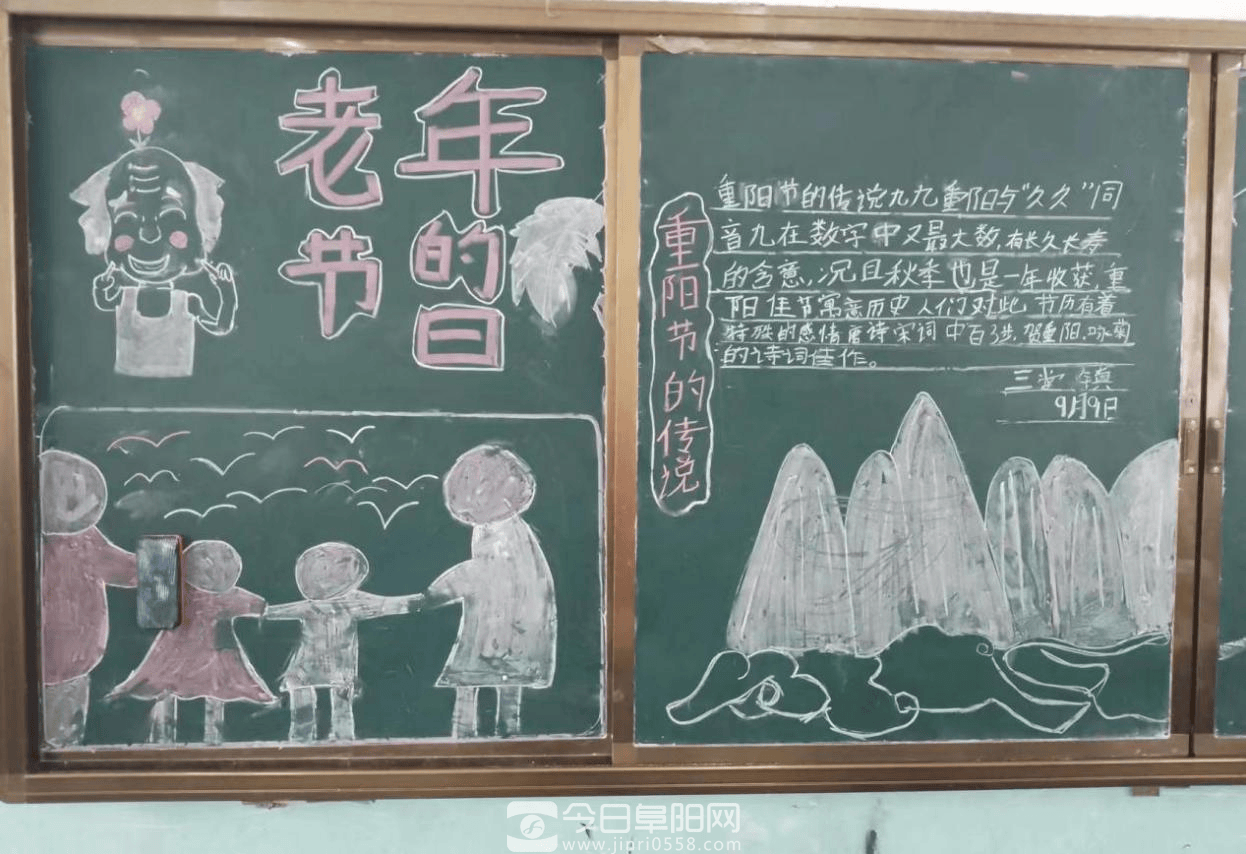 老年的日节
重阳节的传说
重阳节的传说九九重阳与"久久"同
音九在数字中又最大数,有长久长寿
的含意,况且秋季也是一年收获,重
阳佳节寓意历史人们对此节历有着
特殊的感情唐诗宋词中百 贺重阳,咏菊
的诗词佳作。
三 镇
9月9日
今日阜阳网
www.jinri0558.com